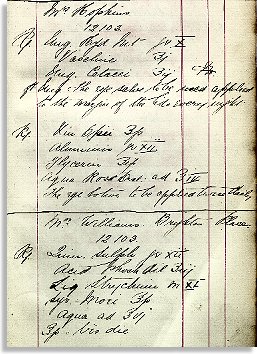 Mrs Hopkins
12103
Rx Ung Hyd Nit gr X
Vaseline ʒj
Ung. Cetacei ʒij
ft Ung. the eye salve to be used applied
to the margin of the lids every night
Rx Vin Opii ʒp
Aluminis gr XII
Glycerin ʒp
Aqua Rosae ad ʒIV
the eye lotion to be applied
Mrs Williams. Brighton Place
12103.
Rx Quin. Sulph gr XII
Acid Phosh Dil ʒiij
Liq Strychniae m XL
Syr. Mori ʒp
Aqua ad ʒvj
ʒp. bis die